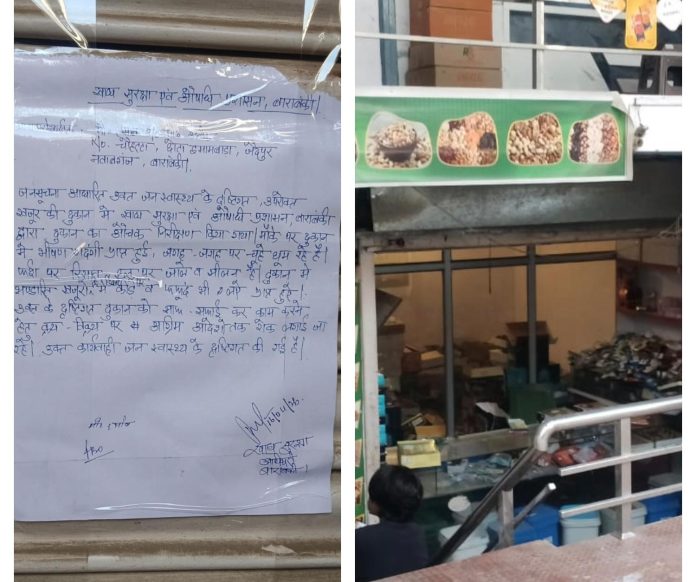 खाद्य सुरक्षा एवं औषधि प्रशासन, बाराबंकी।
R/o. मोहल्ला, छोटा इमामबाड़ा, जैदपुर
बाराबंकी।
जनसूचना आधारित उक्त जन स्वास्थ्य के दृष्टिगत, उपरोक्त
खजूर की दुकान में खाद्य सुरक्षा एवं औषधि प्रशासन, बाराबंकी
द्वारा दुकान का औचक निरीक्षण किया गया। मौके पर दुकान
में भीषण गंदगी प्राप्त हुई, जगह-जगह पर चूहे घूम रहे हैं।
फर्श पर व सीलन है। दुकान में
भण्डारित खजूरों में कीड़े व फफूंद भी प्राप्त हुए।
उक्त के दृष्टिगत दुकान को साफ-सफाई कर काम करने
हेतु क्रय-विक्रय पर अग्रिम आदेश तक रोक लगाई जा
रही है। उक्त कार्यवाही जन स्वास्थ्य के दृष्टिगत की गई है।
खाद्य सुरक्षा
बाराबंकी।